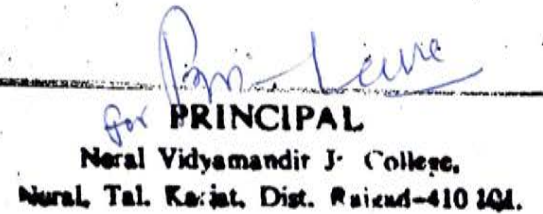 for PRINCIPAL
Neral Vidyamandir Jr College,
Neral, Tal. Karjat, Dist. Raigad-410 101.